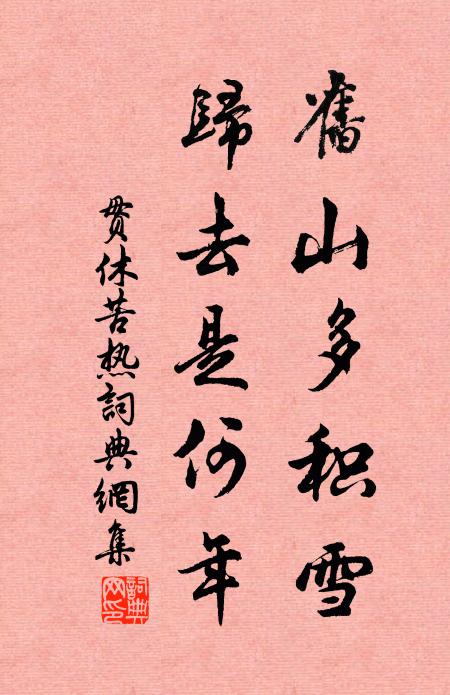 舊山多积雪
歸去是何年
贯休苦热詞典網集
詞典網印